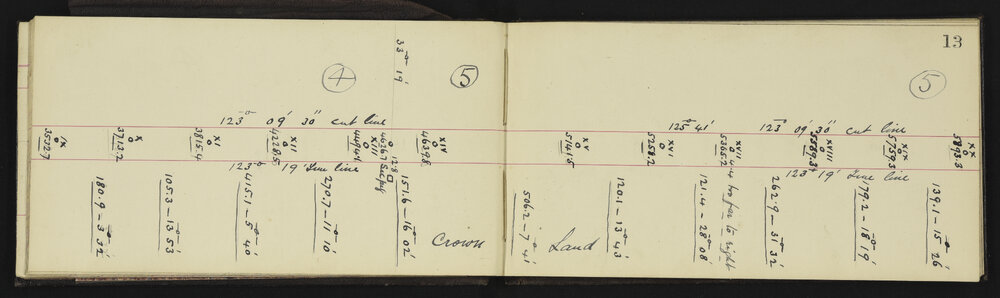 33° 19'
4
5
123° 09' 30" cut line
IX
3532.7
X
3713.2
XI
3815.4
XII
4228.5
XIII
4494.1
XIV
4639.8
123° 19' True line
180.9 – 3° 32'
105.3 – 13° 53'
415.1 – 5° 40'
270.7 – 11° 10'
151.6 – 16° 02'
Crown
13
5
125° 41'
123° 09' 30" cut line
XV
5141.5
XVI
5258.2
XVII
5365.2
XVIII
5589.3
XIX
5759.3
XX
5893.3
123° 19' True line
506.2 – 7° 41'
Land
120.1 – 13° 43'
121.4 – 28° 08'
to right
262.9 – 31° 32'
179.2 – 18° 19'
139.1 – 15° 26'